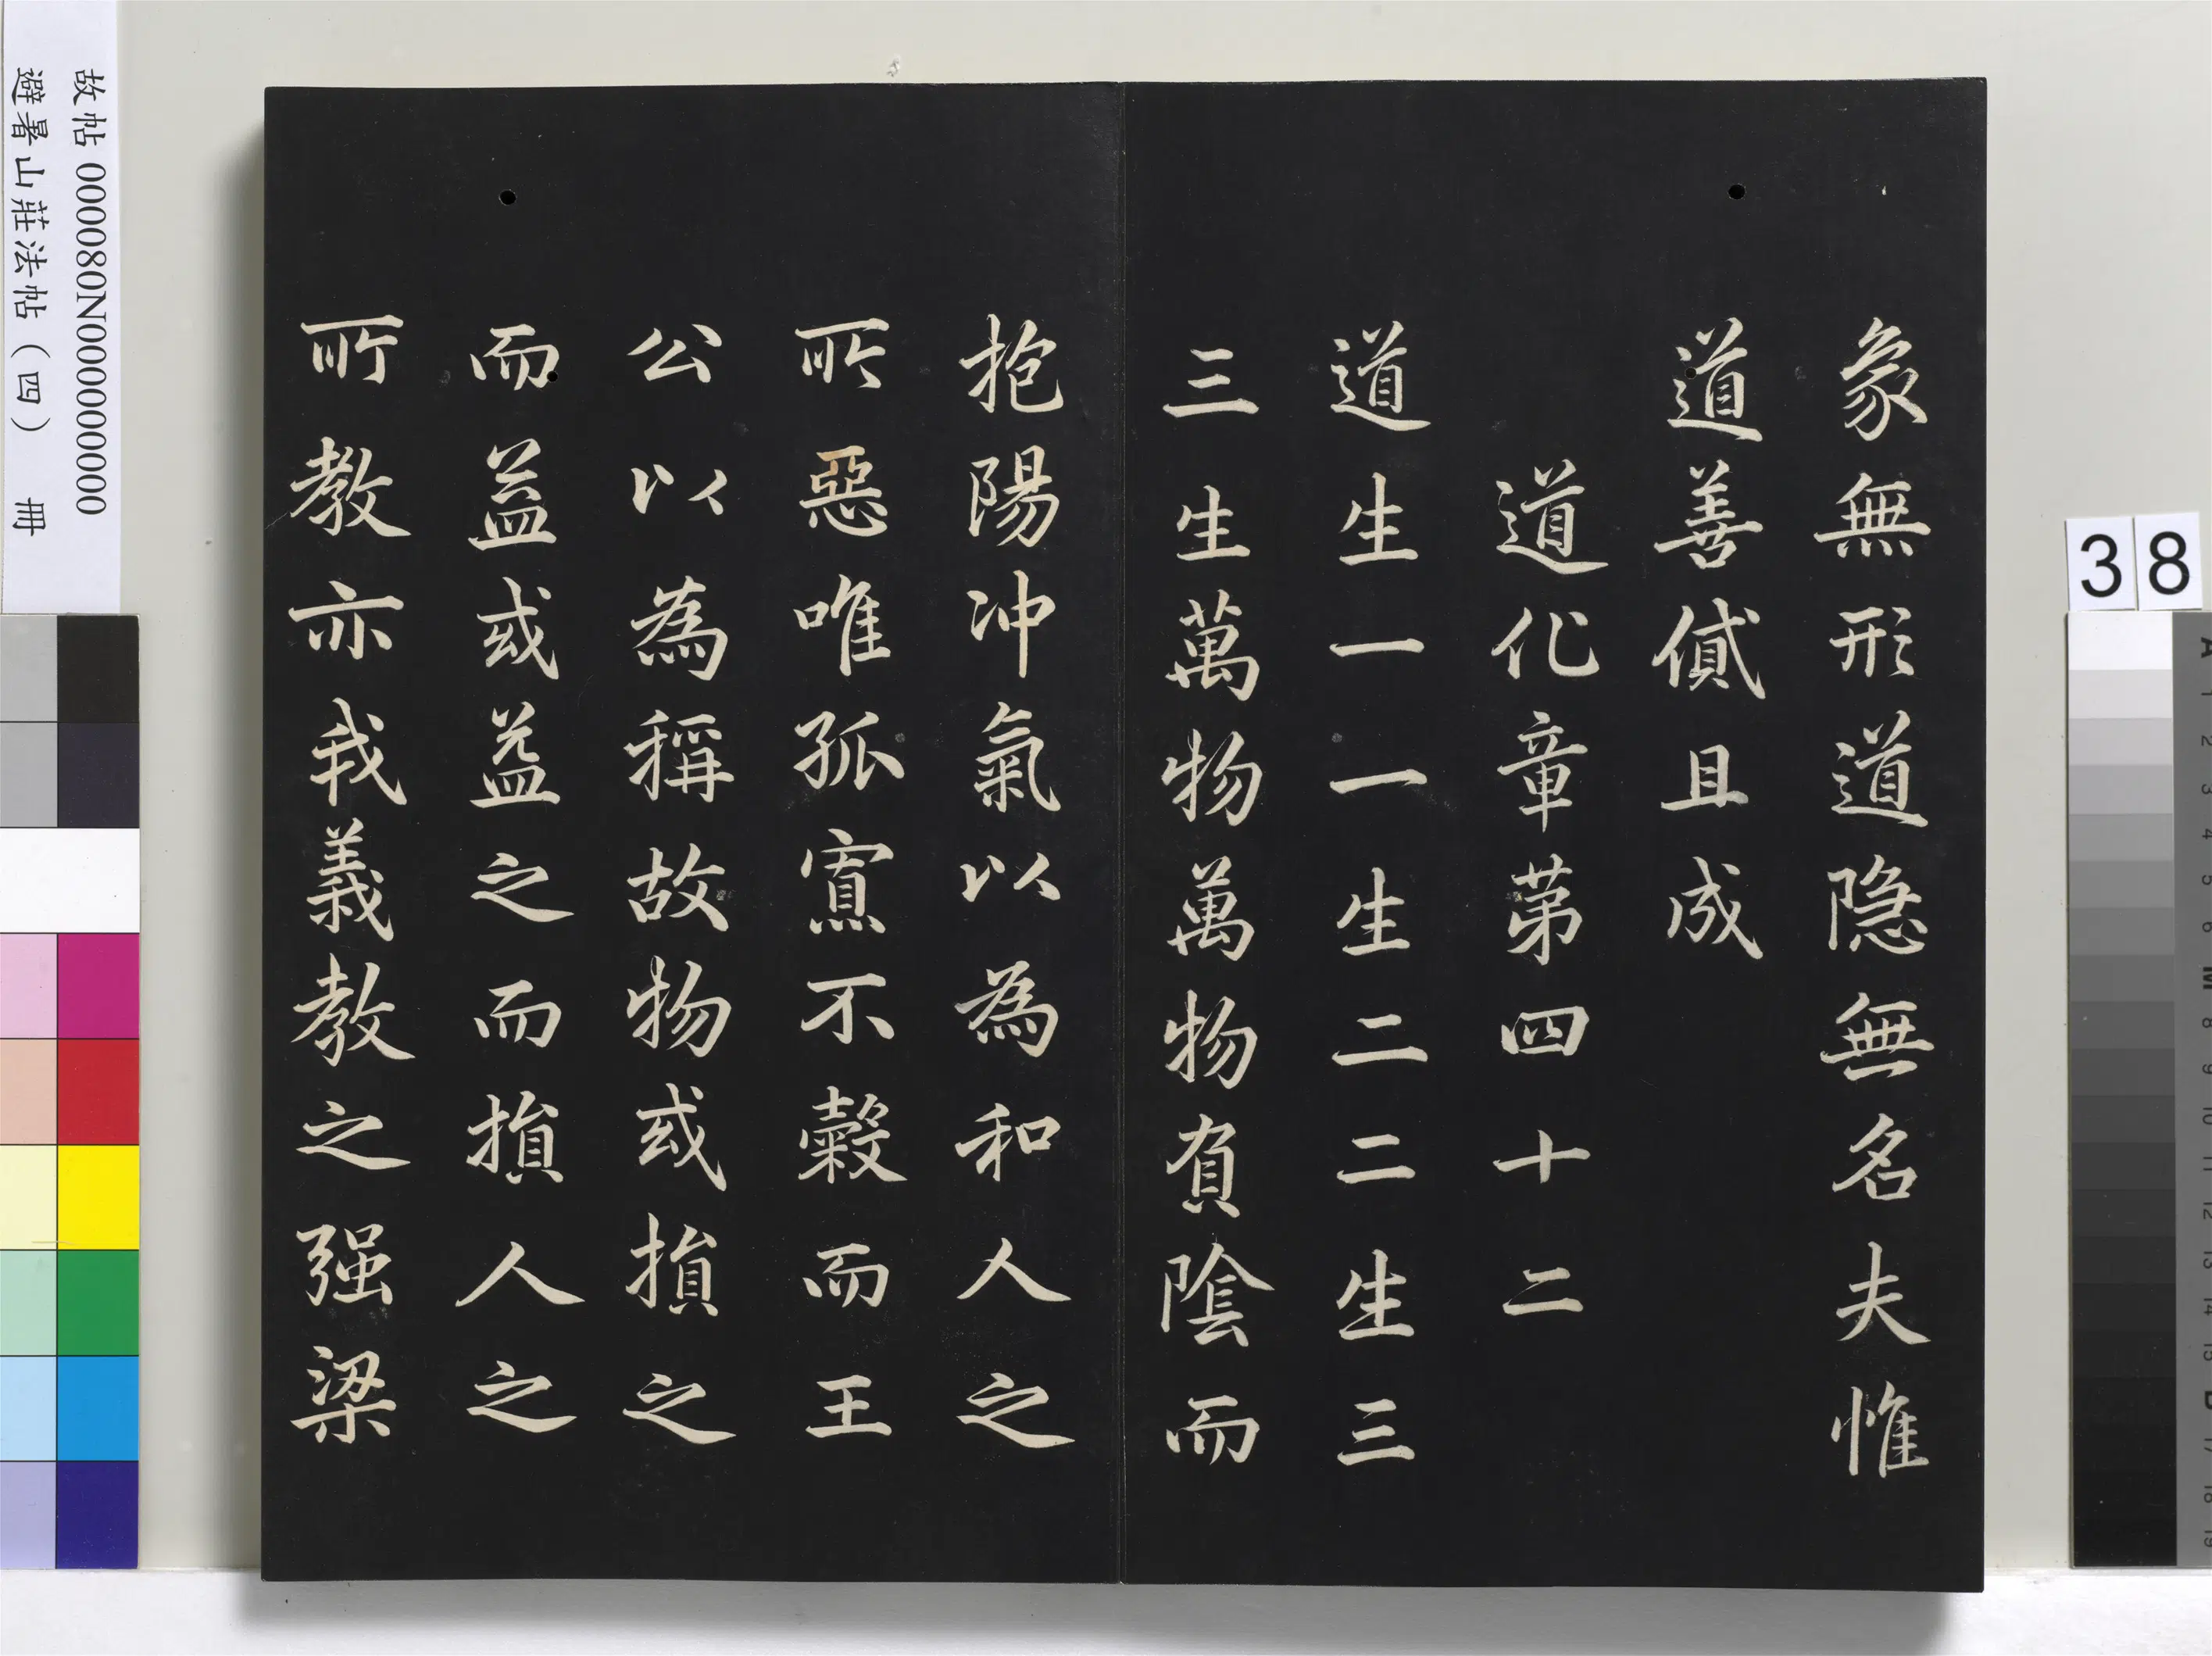 象無形道隐無名夫惟
道善貸且成
道化章第四十二
道生一一生二二生三
三生萬物萬物負陰而
抱陽冲氣以為和人之
所惡唯孤寡不穀而王
公以為稱故物或損之
而益或益之而損人之
所教亦我義教之强梁
故帖 000080N000000000
避暑山莊法帖（四） 冊
38
A
1
2
3
4
5
6
M
8
9
10
11
12
13
14
15
B
17
18
19